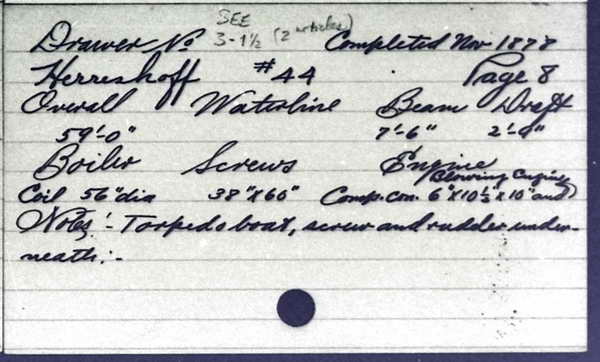 SEE
Drawer No 3-1½ (2 articles) Completed Nov 1878
Herreshoff #44 Page 8
Overall Waterline Beam Draft
59'-0" 7'-6" 2'-0"
Boiler Screws Engine
Blowing Engine
Coil 56" dia 38" x 60" Comp. con. 6" x 10½ x 10" and)
Notes:- Torpedo boat, screw and rudder under-
neath:-